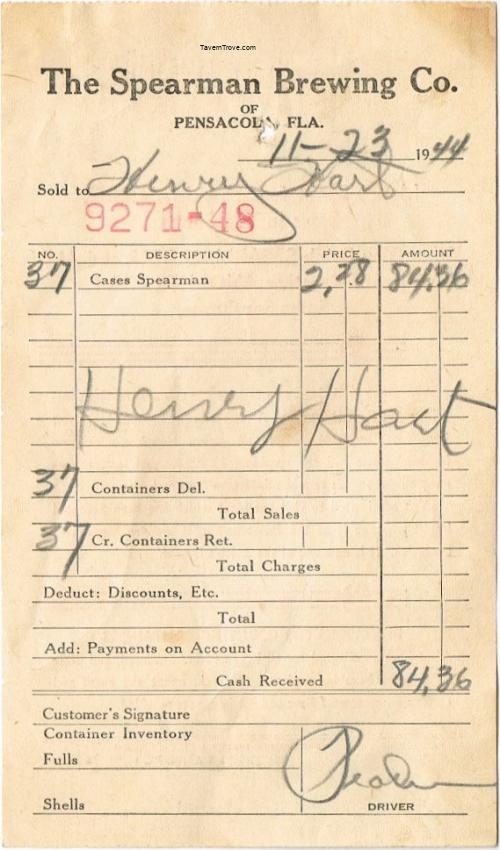 TavernTrove.com
The Spearman Brewing Co.
OF
PENSACOLA, FLA.
11-23 1944
Sold to Henry Hart
9271-48
NO. DESCRIPTION PRICE AMOUNT
37 Cases Spearman 2,28 84,36
Henry Hart
37 Containers Del.
Total Sales
37 Cr. Containers Ret.
Total Charges
Deduct: Discounts, Etc.
Total
Add: Payments on Account
Cash Received 84,36
Customer's Signature
Container Inventory
Fulls
Shells DRIVER